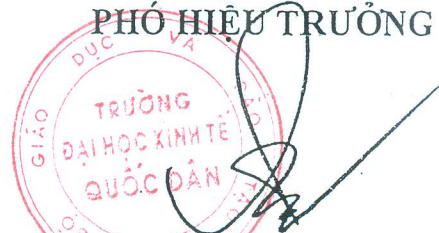 PHÓ HIỆU TRƯỞNG
GIÁO DỤC VÀ
TRƯỜNG
ĐẠI HỌC KINH TẾ
QUỐC DÂN